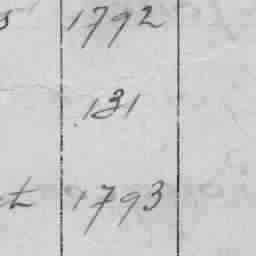 1792
131
1793